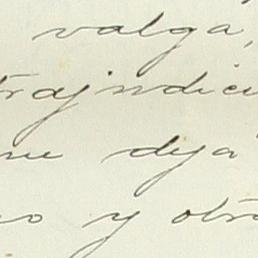 valga,
trajudici
me deja
o y otr